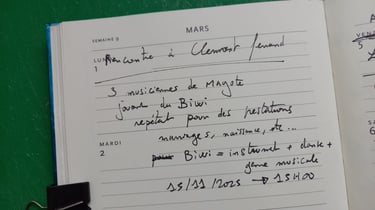 MARS
SEMAINE 9
LUNDI
1
Rencontre à Clermont Ferrand
3 musiciennes de Mayote
jouant du Biwi
repétent pour des prestations
mariages, naissance, etc...
MARDI
2
Biwi = instrument + danse +
genre musicale
15/11/2025 → 15H00